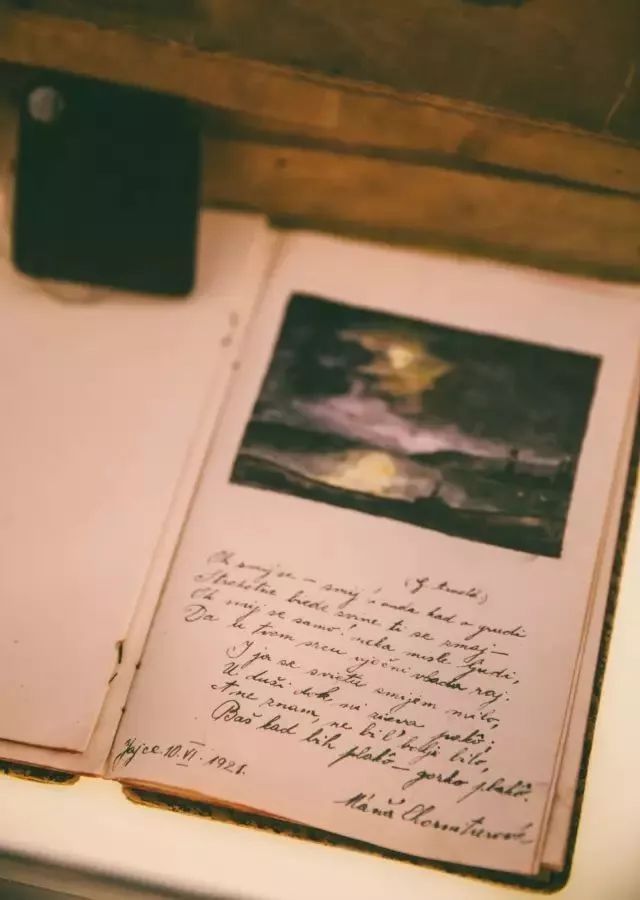 Oh smij se – smij! i onda kad u grudi
Strahotne bijede svime ti se zmaj –
Oh smij se samo! neka misle ljudi,
Da u tvom srcu vječni vlada raj.
I ja se svietu smijem milo,
U duši dok mi zieva pakô;
A ne znam, ne bil' bolje bilo,
Baš kad bih plakô – gorko plakô.
Jajce 10. VI. 1921.
Máňa